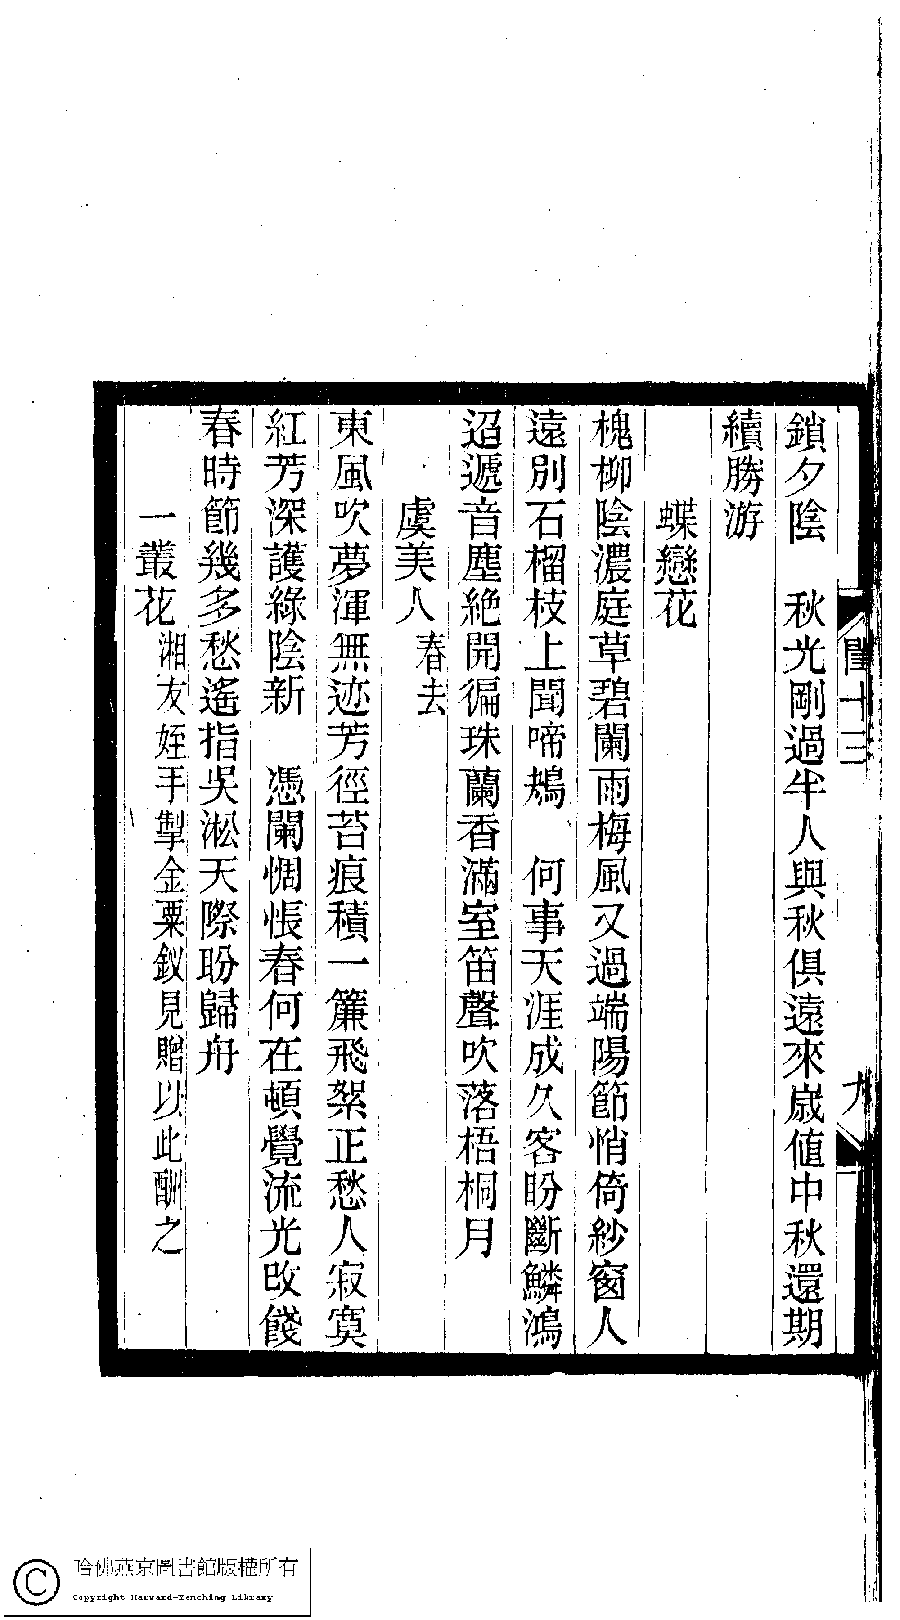 鎖夕陰　秋光剛過半人與秋俱遠來歲値中秋還期
續勝游
蝶戀花
槐柳陰濃庭草碧闌雨梅風又過端陽節悄倚紗窗人
遠別石榴枝上聞啼鴂　何事天涯成久客盼斷鱗鴻
迢遞音塵絶開徧珠蘭香滿室笛聲吹落梧桐月
虞美人春去
東風吹夢渾無迹芳徑苔痕積一簾飛絮正愁人寂寞
紅芳深護綠陰新　憑闌惆悵春何在頓覺流光改餞
春時節幾多愁遙指吳淞天際盼歸舟
一叢花湘友姪手掣金粟釵見贈以此酬之
閨十三
九
哈佛燕京圖書館版權所有
Copyright Harvard-Yenching Library